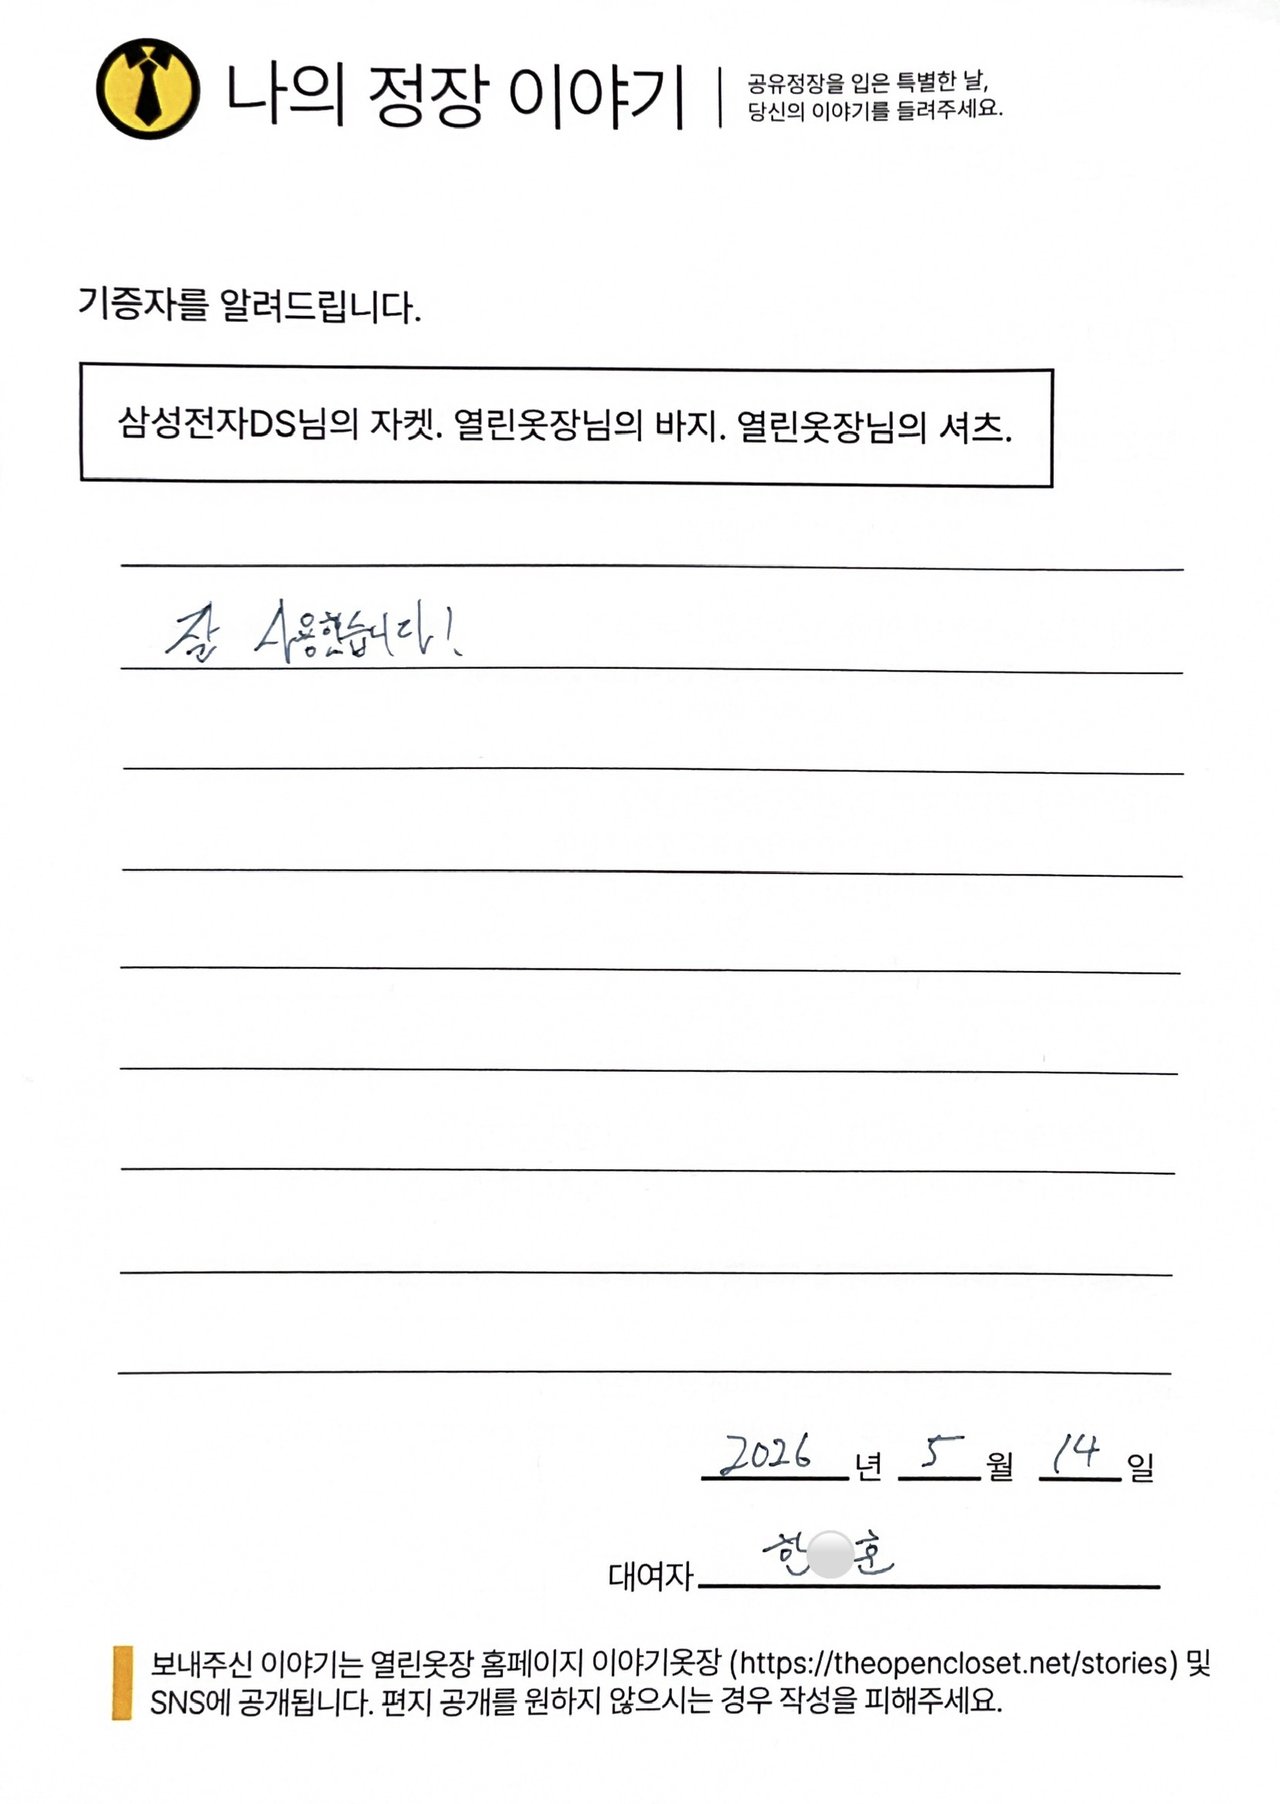 나의 정장 이야기
공유정장을 입은 특별한 날,
당신의 이야기를 들려주세요.
기증자를 알려드립니다.
삼성전자DS님의 자켓. 열린옷장님의 바지. 열린옷장님의 셔츠.
잘 사용했습니다!
2026 년 5 월 14 일
대여자 한 훈
보내주신 이야기는 열린옷장 홈페이지 이야기옷장 (https://theopencloset.net/stories) 및
SNS에 공개됩니다. 편지 공개를 원하지 않으시는 경우 작성을 피해주세요.